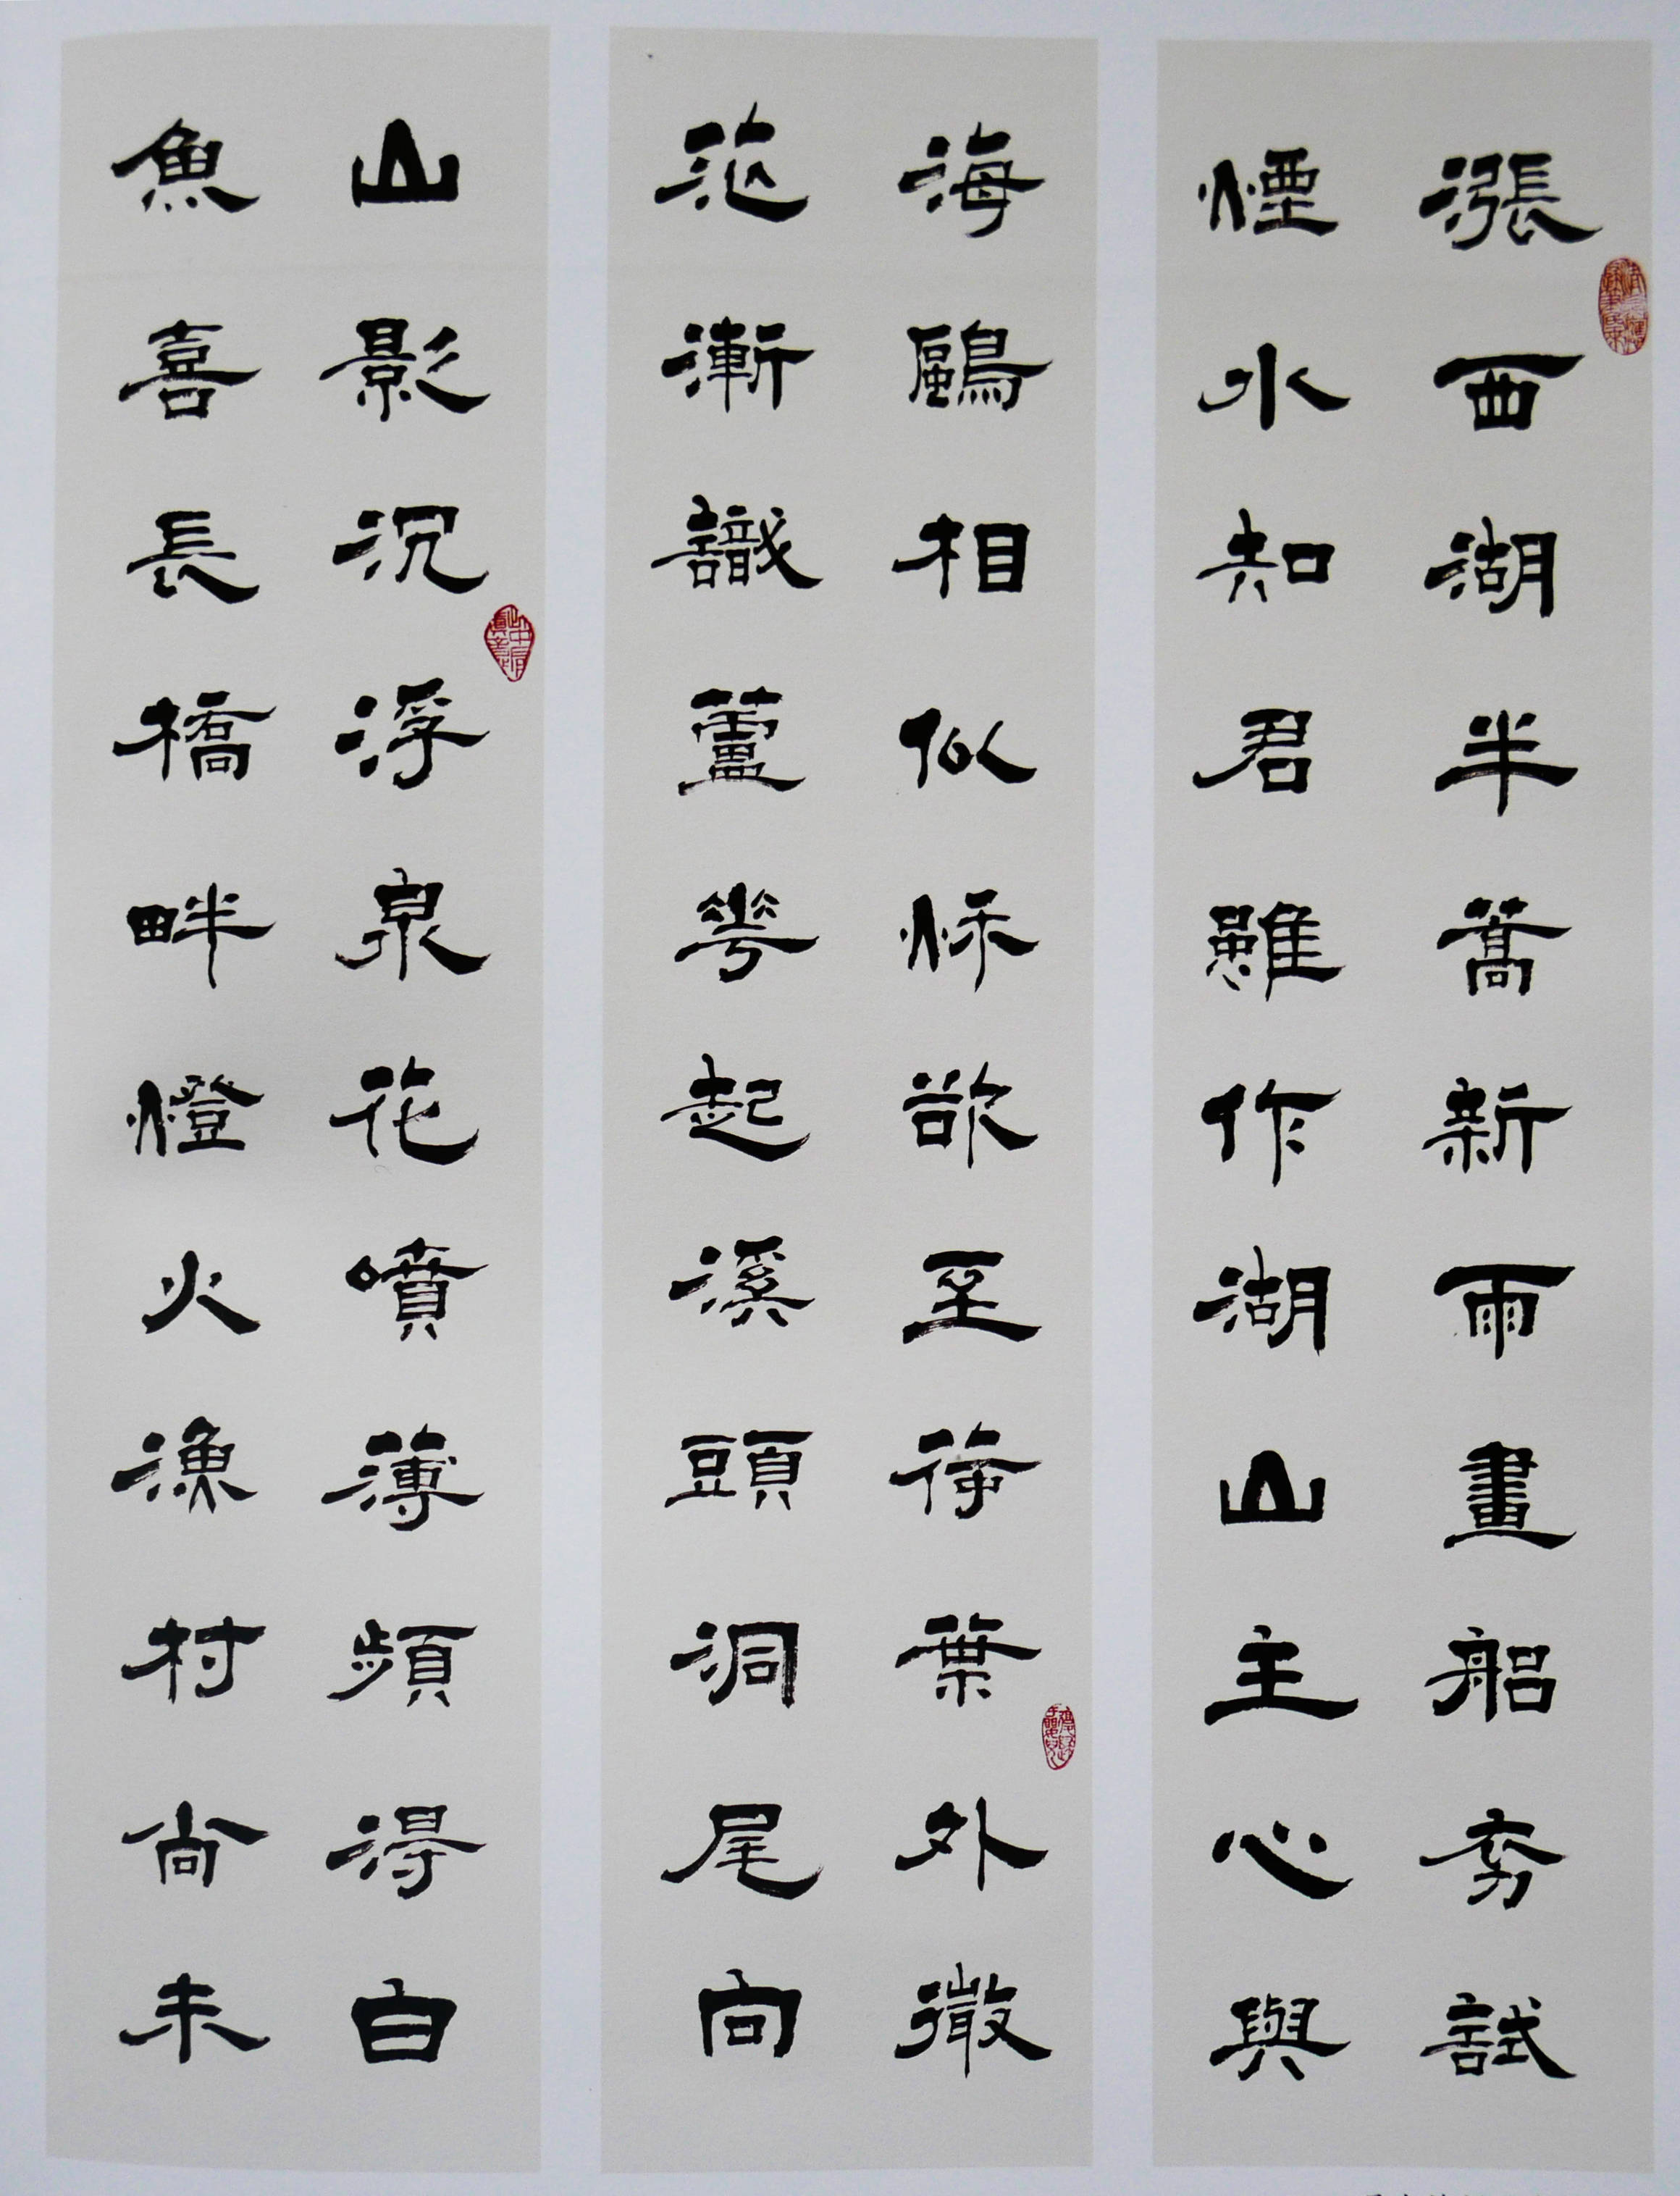 漲西湖半篙新雨畫船試
煙水知君雖作湖山主心與
海鷗相似秋欲至葉外
漸識蘆華起溪頭洞尾向
山影沉浮泉花噴薄頻得白
魚喜長橋畔燈火漁村尚未